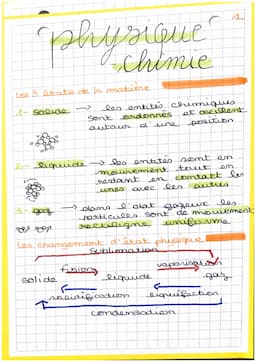 1
physique
chimie
Les 3 états de la matière
1- solide → les entités chimiques
sont ordonnés et oscillent
autour d'une position
2- liquide → les entités sont en
mouvement tout en
restant en contact les
unes avec les autres
3- gaz → dans l'état gazeux les
particules sont de mouvement
rectiligne uniforme
Les changement d'état physique
sublimation
fusion vaporisation
solide liquide gaz
solidification liquéfaction
condensation